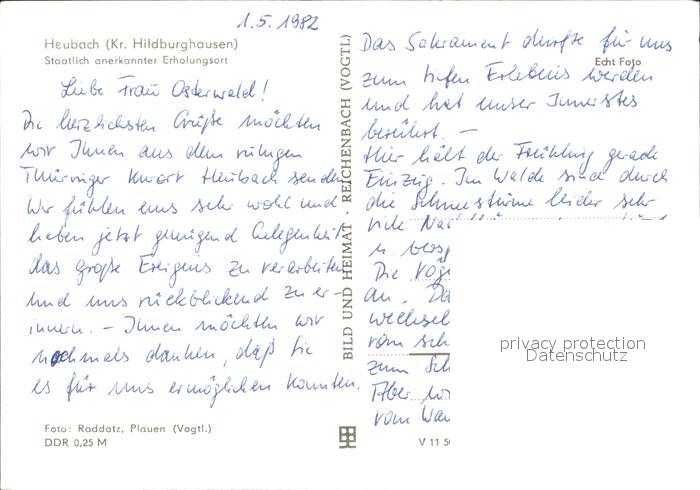 1.5.1982
Heubach (Kr. Hildburghausen)
Staatlich anerkannter Erholungsort
Liebe Frau Osterwald!
Die herzlichsten Grüße möchten
wir Ihnen aus dem ruhigen
Thüringer Kurort Heubach senden.
Wir fühlen uns sehr wohl und
haben jetzt genügend Gelegenheit
das große Ereignis zu verarbeiten
und uns rückblickend zu er-
innern. – Ihnen möchten wir
nochmals danken, daß Sie
es für uns ermöglichen konnten.
Foto: Raddatz, Plauen (Vogtl.)
DDR 0,25 M
BILD UND HEIMAT · REICHENBACH (VOGTL)
Das Sakrament durfte für uns
Echt Foto
zum tiefen Erlebnis werden
und hat unser Innerstes
berührt. –
Hier hält der Frühling gerade
Einzug. Im Walde sind durch
die Schneestürme leider sehr
viele
u.
Die Vög
an. Da
wechsel
vom sch
zum Sch
Aber wi
vom Wa
V 11 50
privacy protection
Datenschutz